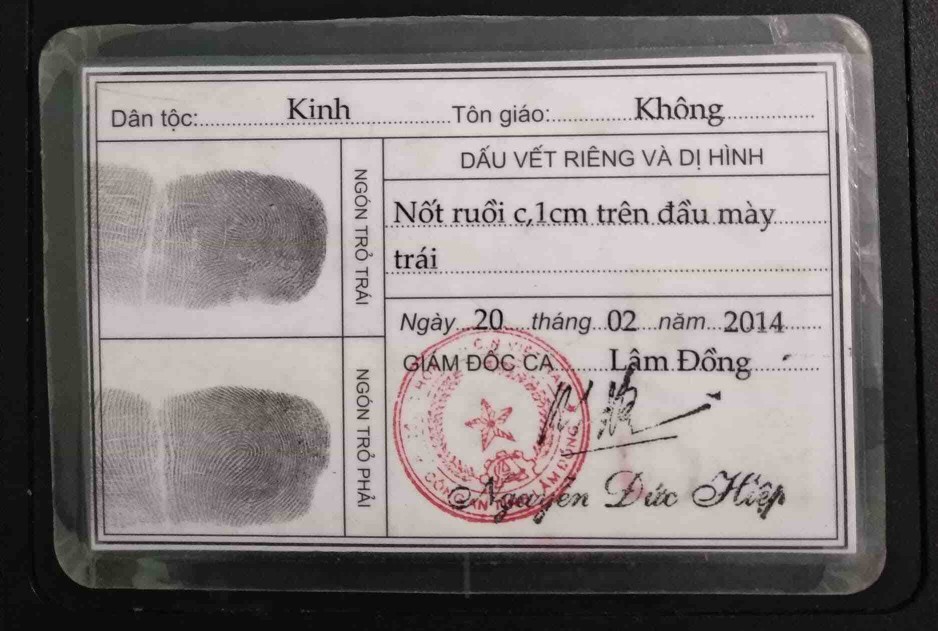 Dân tộc: Kinh Tôn giáo: Không
NGÓN TRỎ TRÁI
NGÓN TRỎ PHẢI
DẤU VẾT RIÊNG VÀ DỊ HÌNH
Nốt ruồi c,1cm trên đầu mày
trái
Ngày 20 tháng 02 năm 2014
GIÁM ĐỐC CA Lâm Đồng
Nguyễn Đức Hiệp